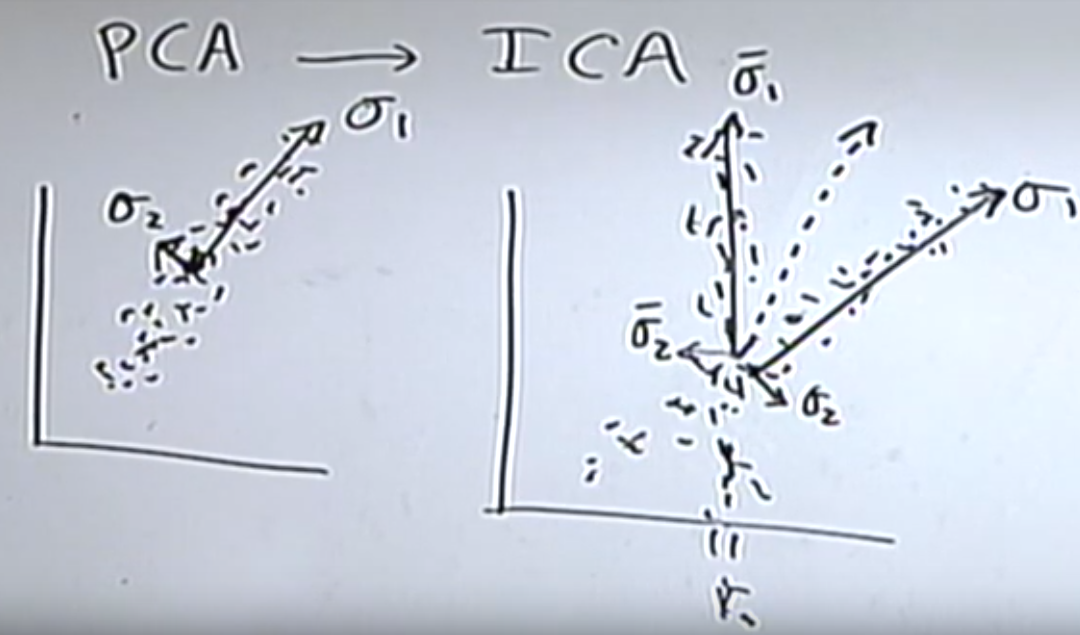 PCA → ICA
σ̄₁
σ₁
σ₁
σ₂
σ̄₂
σ₂